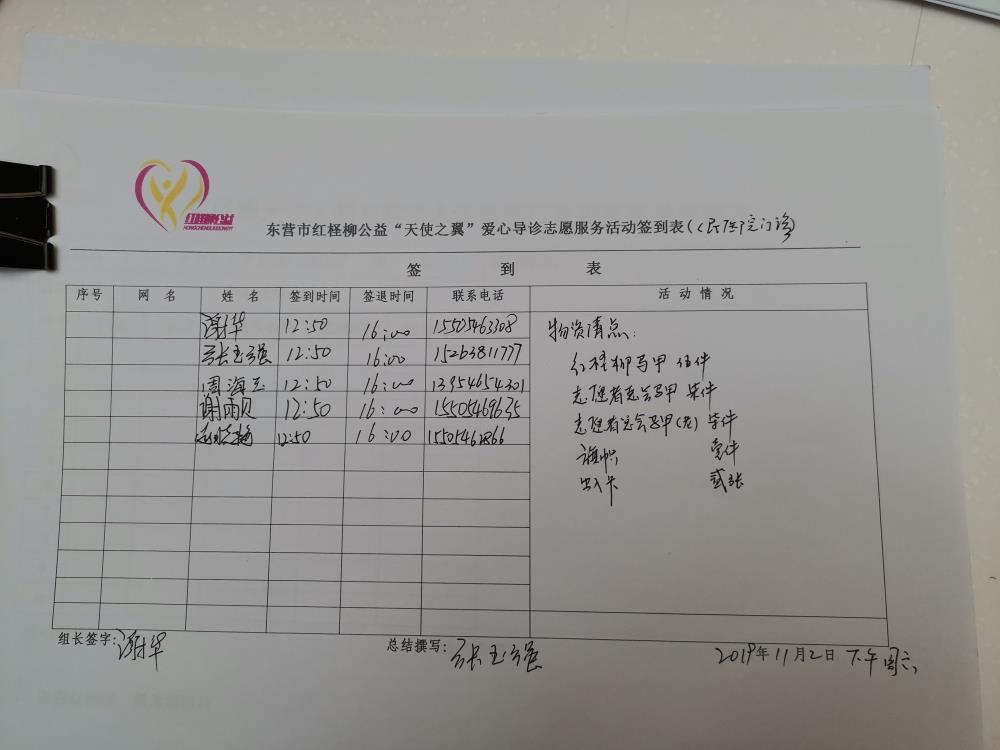 红柽柳公益
HONGCHENGLIUGONGYI
东营市红柽柳公益“天使之翼”爱心导诊志愿服务活动签到表(人民医院门诊)
签 到 表
序号 网 名 姓 名 签到时间 签退时间 联系电话 活 动 情 况
谢华 12:50 16:00 15505463308
张玉强 12:50 16:00 15263811777
周海玉 12:50 16:00 13954654301
谢雨贝 12:50 16:00 15505469635
12:50 16:00
物资清点:
红柽柳马甲 伍件
志愿者总会马甲 柒件
志愿者总会马甲(克) 柒件
旗帜 壹件
出入卡 贰张
组长签字:谢华 总结撰写:张玉强 2019年11月2日 下午周六